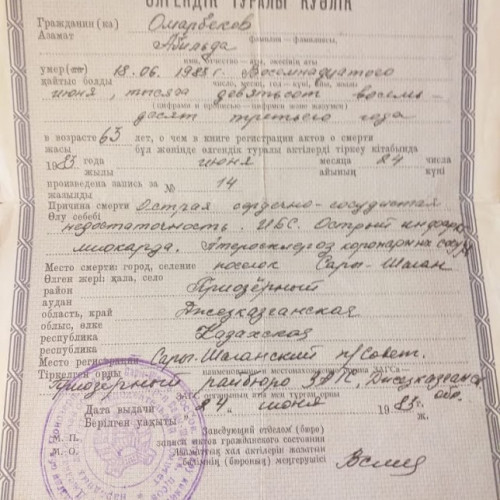 ӨЛГЕНДІК ТУРАЛЫ КУӘЛІК
Гражданин (ка) Омарбеков
Азамат
фамилия — фамилиясы,
Абильда
имя, отчество — аты, әкесінің аты
умер(ла) 18.06.1983 г. Восемнадцатого
қайтыс болды число, месяц, год — күні, айы, жылы
июня, тысяча девятьсот восемь-
(цифрами и прописью — цифрмен және жазумен)
десят третьего года
в возрасте 63 лет, о чем в книге регистрации актов о смерти
жасы бұл жөнінде өлгендік туралы актілерді тіркеу кітабында
1983 года июня месяца 24 числа
жылы айының күні
произведена запись за № 14
жазылды
Причина смерти Острая сердечно-сосудистая
Өлу себебі
недостаточность. ИБС. Острый инфаркт
миокарда. Атеросклероз коронарных сосуд
Место смерти: город, селение поселок Сары-Шаган
Өлген жері: қала, село
район Приозёрный
аудан
область, край Джезказганская
облыс, өлке
республика Казахская
республика
Место регистрации Сары-Шаганский п/Совет.
Тіркелген орны наименование и местонахождение органа ЗАГСа
Приозёрный райбюро ЗАГС, Джезказганс
обл.
Дата выдачи „24„ июня 1983 г.
Берілген уақыты ж.
М. П. Заведующий отделом (бюро)
записи актов гражданского состояния
М. О. Азаматтық хал актілерін жазатын
бөлімнің (бюроның) меңгерушісі